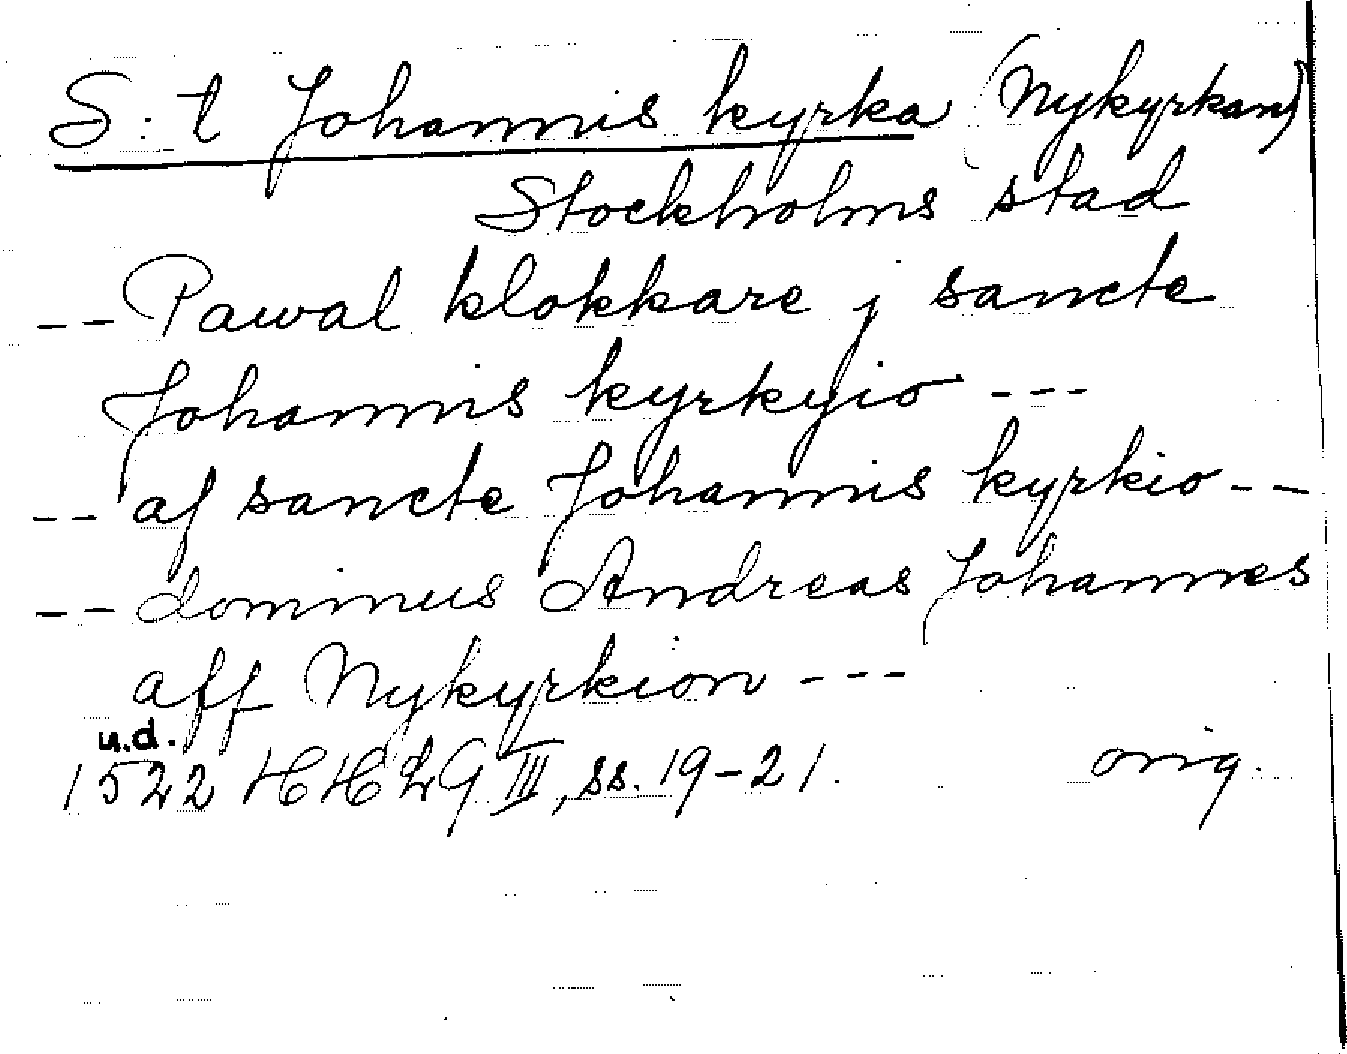 S:t Johannis kyrka (Nykyrkan)
Stockholms stad
-- Pawal klokkare j sancte
Johannis kyrkyio ---
-- af sancte Johannis kyrkio --
-- dominus Andreas Johannes
aff Nykyrkion ---
u.d.
1522 HH2G III, ss. 19-21. orig.